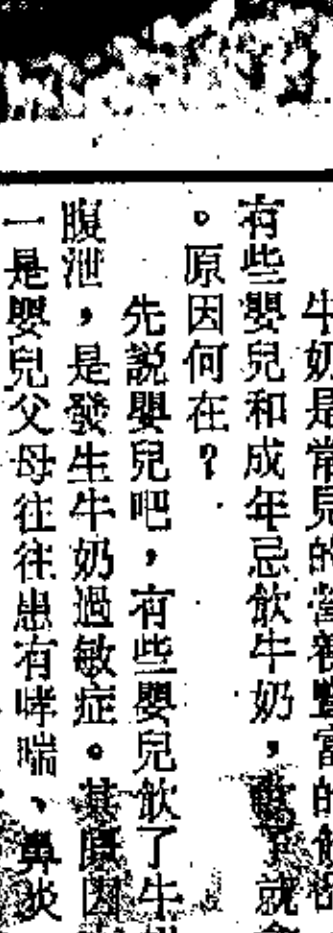 牛奶是常見的營養豐富的
有些嬰兒和成年忌飲牛奶，飲了就會
。原因何在？
先説嬰兒吧，有些嬰兒飲了牛奶
腹泄，是發生牛奶過敏症。其原因
一是嬰兒父母往往患有哮喘、鼻炎